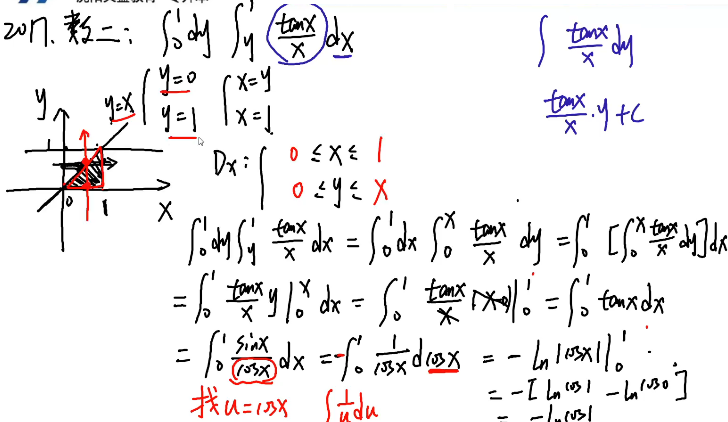 2017. 数二: ∫₀¹dy ∫ᵧ¹ tanx/x dx
∫ tanx/x dy
tanx/x · y + C
y=x { y=0 { x=y
y=1 x=1
y
1
0 1 x
Dx: { 0 ≤ x ≤ 1
0 ≤ y ≤ x
∫₀¹dy∫ᵧ¹ tanx/x dx = ∫₀¹dx ∫₀ˣ tanx/x dy = ∫₀¹ [∫₀ˣ tanx/x dy]dx
= ∫₀¹ tanx/x y|₀ˣ dx = ∫₀¹ tanx/x (x-0)|₀¹ = ∫₀¹ tanx dx
= ∫₀¹ sinx/cosx dx = -∫₀¹ 1/cosx dcosx = -ln|cosx||₀¹
= -[lncos1 - lncos0]
= -lncos1
找u=cosx ∫ 1/u du